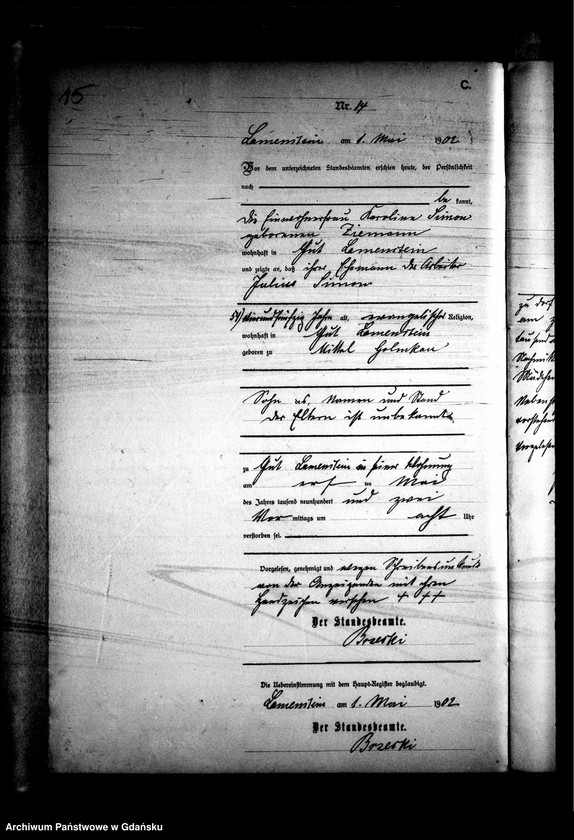 15
C.
Nr. 14
Lamenstein am 1. Mai 1902.
Vor dem unterzeichneten Standesbeamten erschien heute, der Persönlichkeit
nach
be kannt,
die Einwohnerfrau Karoline Simon
geborenen Ziemann
wohnhaft in Gut Lamenstein
und zeigte an, daß ihrer Ehemann der Arbeiter
Julius Simon
54) vierundfünfzig Jahre alt, evangelischer Religion,
wohnhaft in Gut Lamenstein
geboren zu Mittel Golmkau
Sohn des, Namen und Stand
der Eltern ist unbekannt
zu Gut Lamenstein in seiner Wohnung
am ersten Mai
des Jahres tausend neunhundert und zwei
Vor mittags um acht Uhr
verstorben sei.
Vorgelesen, genehmigt und wegen Schreibensunkunde
von der Anzeigenden mit ihren
Handzeichen versehen + + +
Der Standesbeamte.
Brzeski
Die Uebereinstimmung mit dem Haupt-Register beglaubigt.
Lamenstein am 1. Mai 1902
Der Standesbeamte.
Brzeski
Archiwum Państwowe w Gdańsku